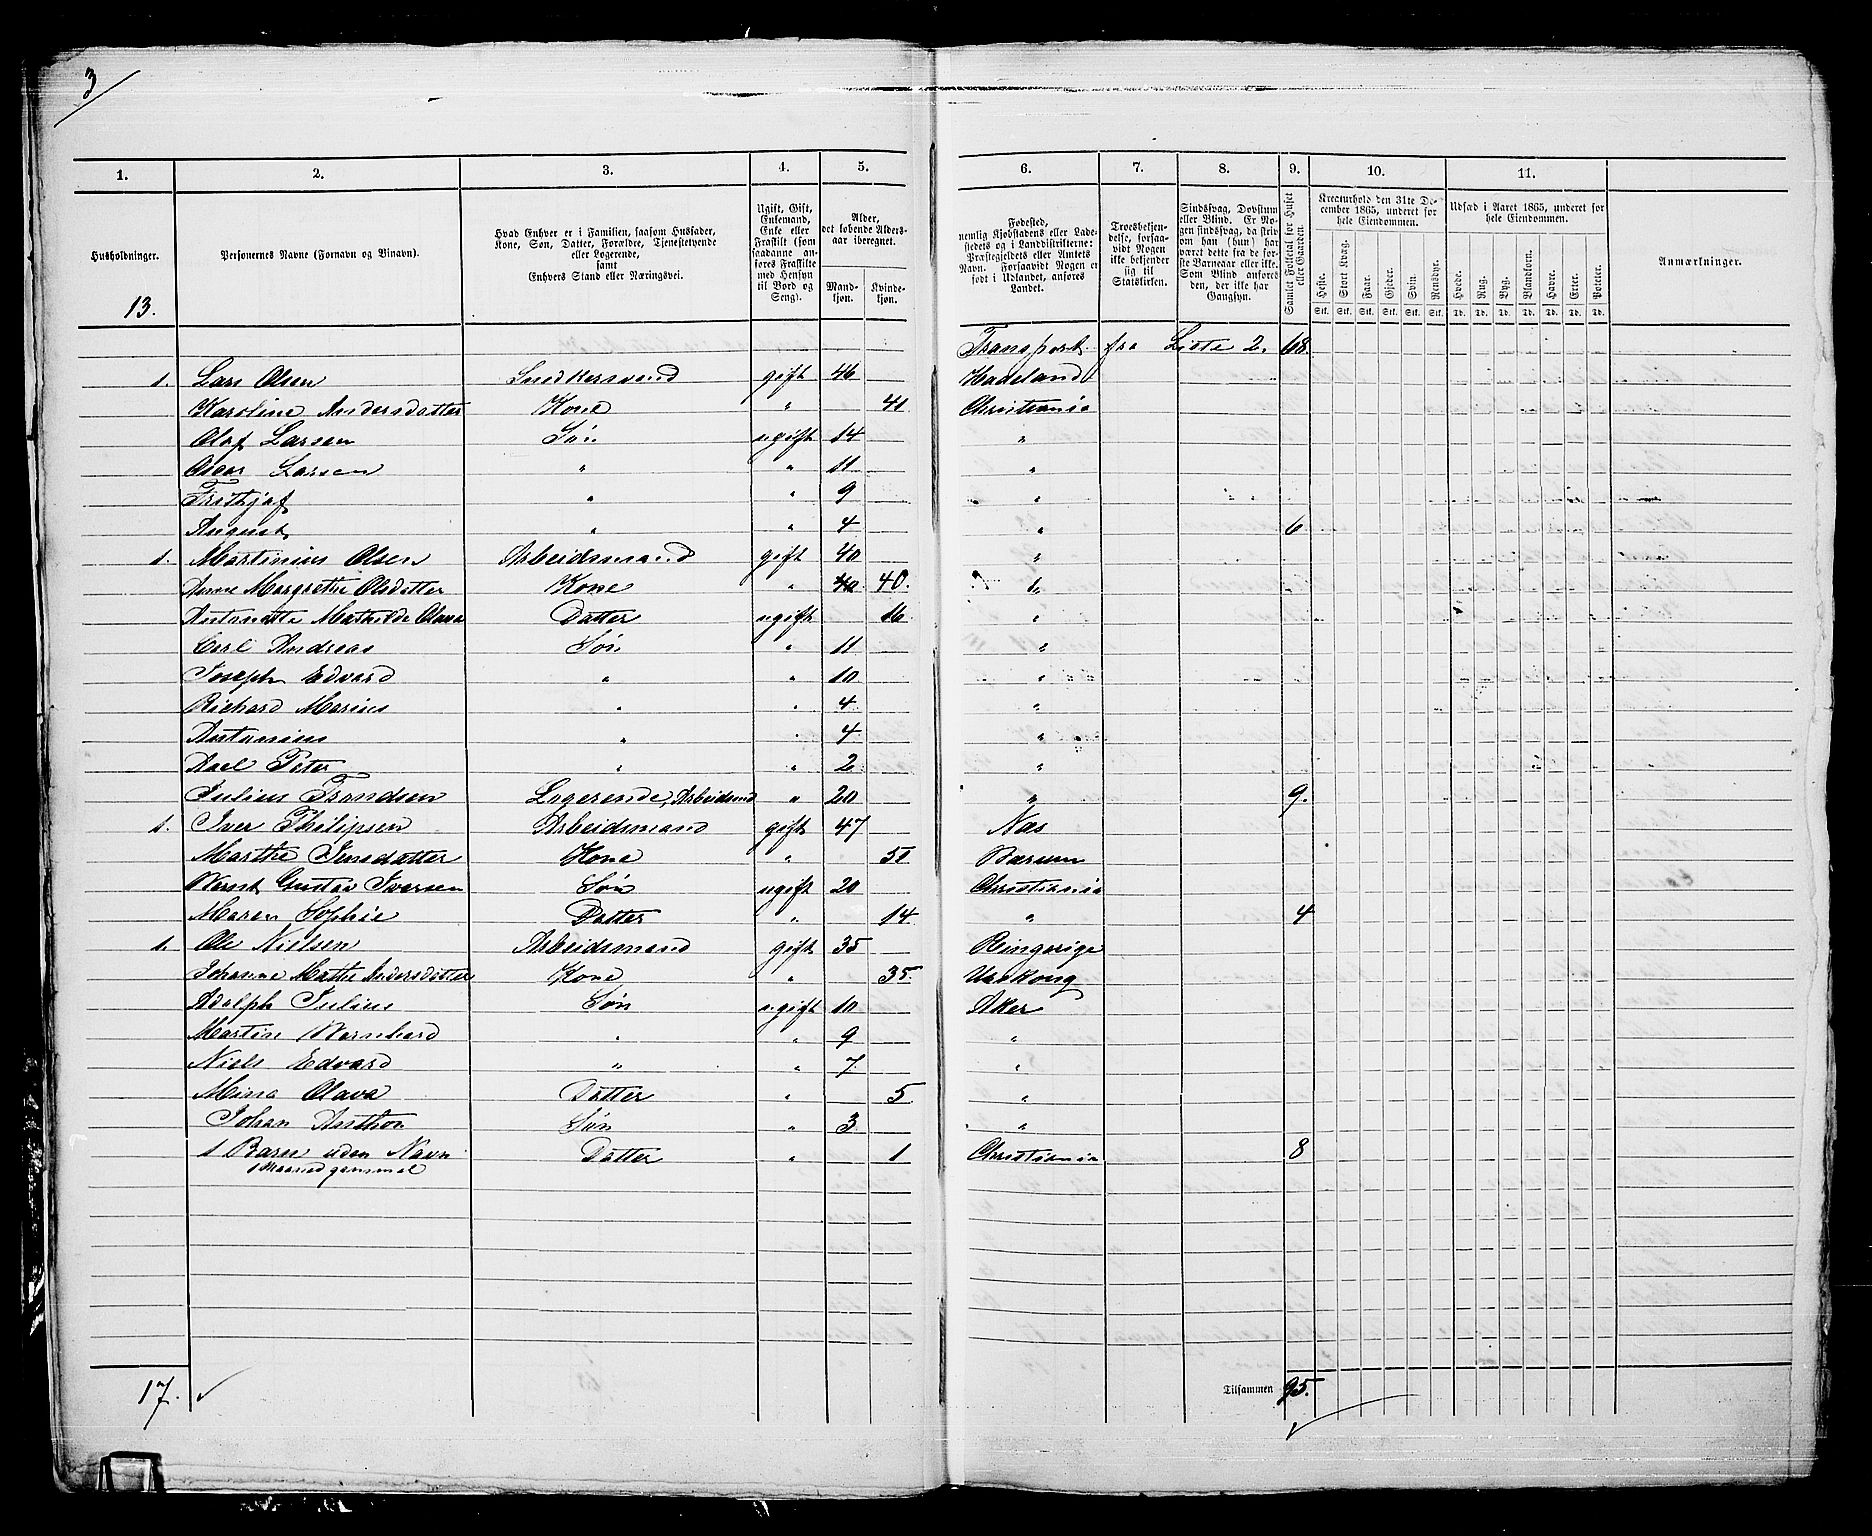 3
1. 2. 3. 4. 5. 6. 7. 8. 9. 10. 11.
Husholdninger.
Personernes Navne (Fornavn og Binavn).
Hvad Enhver er i Familien, saasom Husfader, Kone, Søn, Datter, Forældre, Tjenestetyende eller Logerende, samt Enhvers Stand eller Næringsvei.
Ugift, Gift, Enkemand, Enke eller Fraskilt (som saadanne anføres Fraskilte med Hensyn til Bord og Seng).
Alder, det løbende Alders-aar iberegnet.
Mand-kjøn. Kvinde-kjøn.
Fødested, nemlig Kjøbstadens eller Ladestedets og i Landdistrikterne: Præstegjeldets eller Amtets Navn. Forsaavidt Nogen er født i Udlandet, anføres Landet.
Troesbekjendelse, forsaavidt Nogen ikke bekjender sig til Statskirken.
Sindssvag, Døvstum eller Blind. Er Nogen sindssvag, da skrives om han (hun) har været dette fra de første Barneaar eller ikke. Som Blind anføres den, der ikke har Gangsyn.
Samlet Folketal for Huset eller Gaarden.
Kreaturhold den 31te December 1865, underet for hele Eiendommen.
Heste. Stort Kvæg. Faar. Gjeder. Svin. Rensdyr.
Stk. Stk. Stk. Stk. Stk. Stk.
Udsæd i Aaret 1865, underet for hele Eiendommen.
Hvede. Rug. Byg. Blandkorn. Havre. Erter. Poteter.
Td. Td. Td. Td. Td. Td. Td.
Anmærkninger.
13.
Transport fra Liste 2. 68.
1. Lars Olsen Snedkersvend gift 46 Hadeland
Karoline Andersdatter Kone " 41 Christiania
Olaf Larsen Søn ugift 14 "
Oscar Larsen " " 11 "
Frithjof " " 9 "
August " " 4 " 6
1. Martinius Olsen Arbeidsmand gift 40 "
Anne Margrethe Olsdatter Kone " 40 40. "
Antonette Mathilde Olava Datter ugift 16 "
Carl Andreas Søn " 11 "
Joseph Edvard " " 10 "
Richard Marius " " 4 "
Antonius " " 4 "
Axel Peter " " 2 "
Julius Trondsen Logerende, Arbeidsmd " 20 " 9.
1. Iver Philipsen Arbeidsmand gift 47 Næs
Marthe Jensdatter Kone " 51 Bærum
Bernt Gustav Iversen Søn ugift 20 Christiania
Maren Sophie Datter " 14 " 4
1. Ole Nielsen Arbeidsmand gift 35 Ringerige
Johanne Mathe Andersdatter Kone " 35. Urskoug
Adolph Julius Søn ugift 10 Aker
Martin Bernhard " " 9 "
Niels Edvard " " 7 "
Mina Olava Datter " 5 "
Johan Anthon Søn " 3 "
1 Barn uden Navn Datter " 1 Christiania 8
1 Maaned gammel
17. Tilsammen 95.